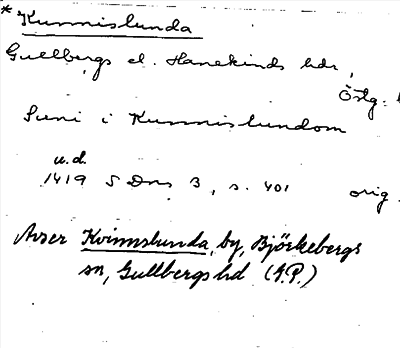 * Kunnislunda
Gullbergs el. Hanekinds hdr,
Östg.
Suni i Kunnislundom
u.d.
1419 SDns 3, s. 401 orig.
Avser Kvinnslunda, by, Björkebergs
sn, Gullbergs hd (G.P.)